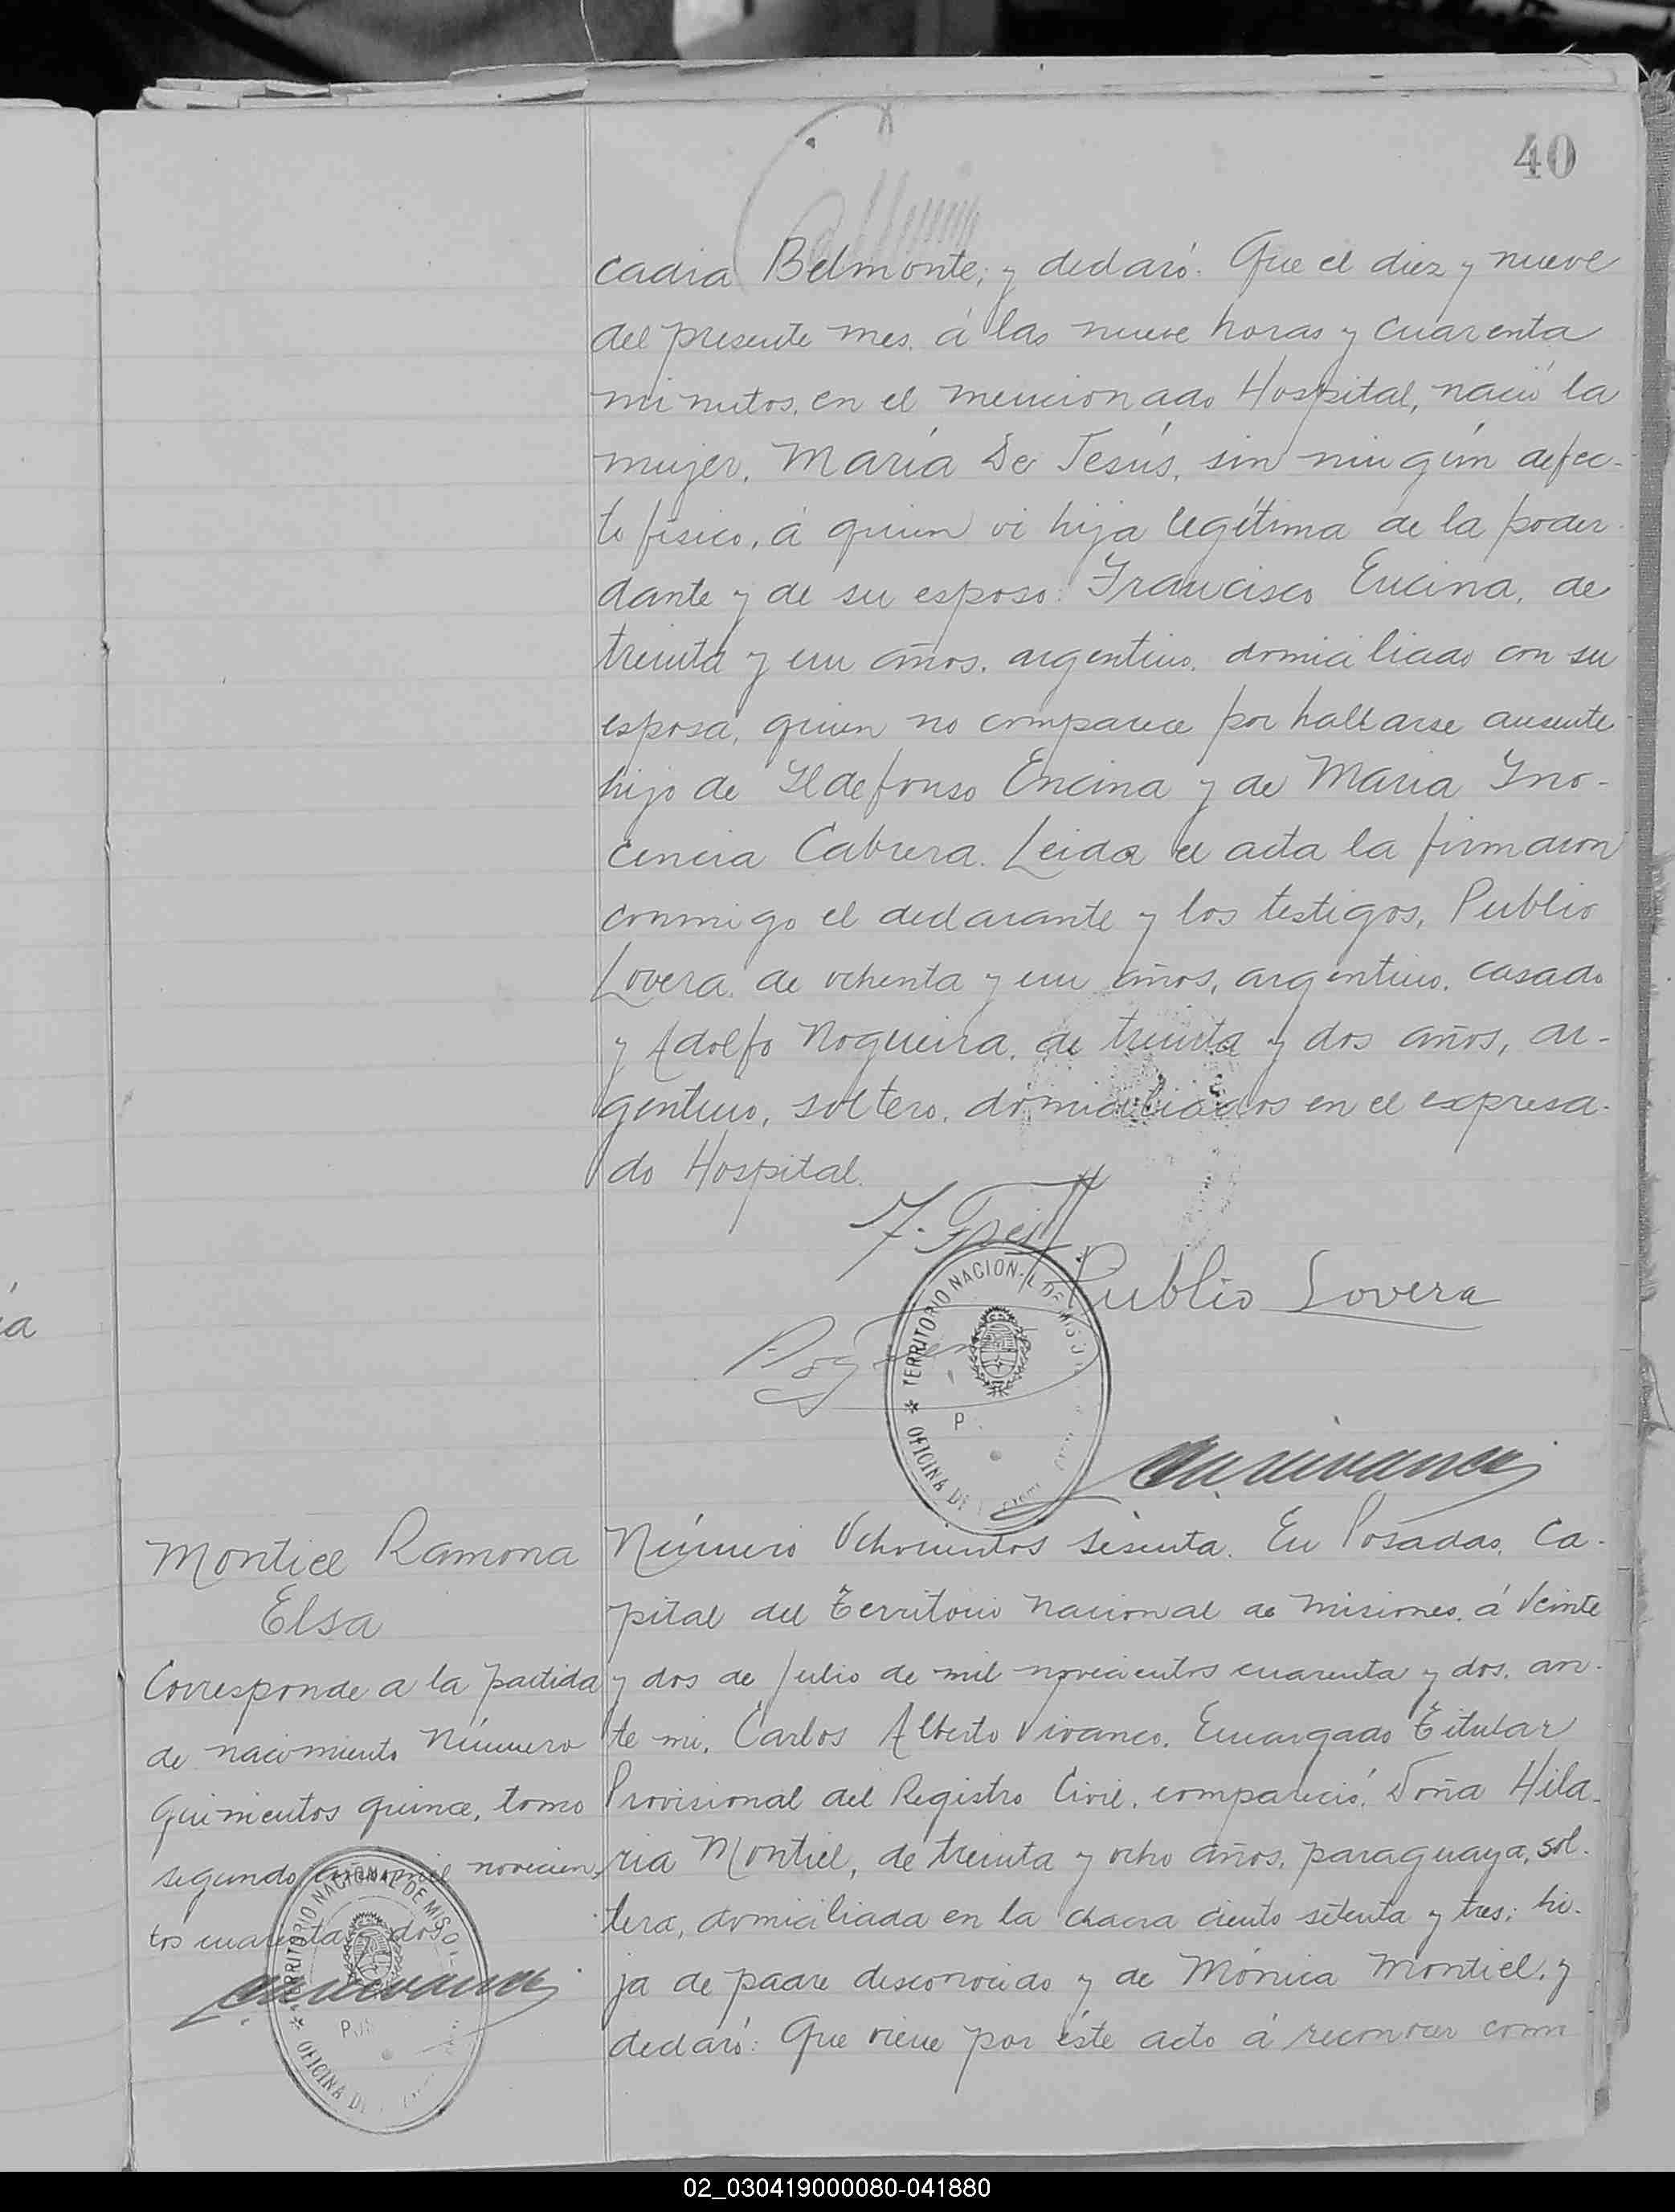 40
cadia Belmonte; y declaró: Que el diez y nueve
del presente mes, á las nueve horas y cuarenta
minutos, en el mencionado Hospital, nació la
mujer, María De Jesús, sin ningún defec-
to físico, á quien vi hija legítima de la poder-
dante y de su esposo: Francisco Encina, de
treinta y un años, argentino, domiciliado con su
esposa, quien no comparece por hallarse ausente
hijo de Ildefonso Encina y de Maria Ino-
cencia Cabrera. Leida el acta la firmaron
conmigo el declarante y los testigos, Publio
Lovera, de ochenta y un años, argentino, casado
y Adolfo Nogueira, de treinta y dos años, ar-
gentino, soltero, domiciliados en el expresa-
do Hospital.
Publio Lovera
TERRITORIO NACIONAL DE MIS
OFICINA DE
Montiel Ramona
Elsa
Corresponde a la partida
de nacimiento Número
quinientos quince, tomo
segundo, novecien-
tos cuarenta y dos
TERRITORIO NACIONAL DE MISIO
OFICINA DE
Número Ochocientos sesenta. En Posadas, Ca-
pital del Territorio Nacional de Misiones, á veinte
y dos de Julio de mil novecientos cuarenta y dos, an-
te mi, Carlos Alberto Vivanco, Encargado Titular
Provisional del Registro Civil, compareció, Doña Hila-
ria Montiel, de treinta y ocho años, paraguaya, sol-
tera, domiciliada en la chacra ciento setenta y tres; hi-
ja de padre desconocido y de Mónica Montiel, y
declaró: Que viene por éste acto á reconocer como
02_030419000080-041880